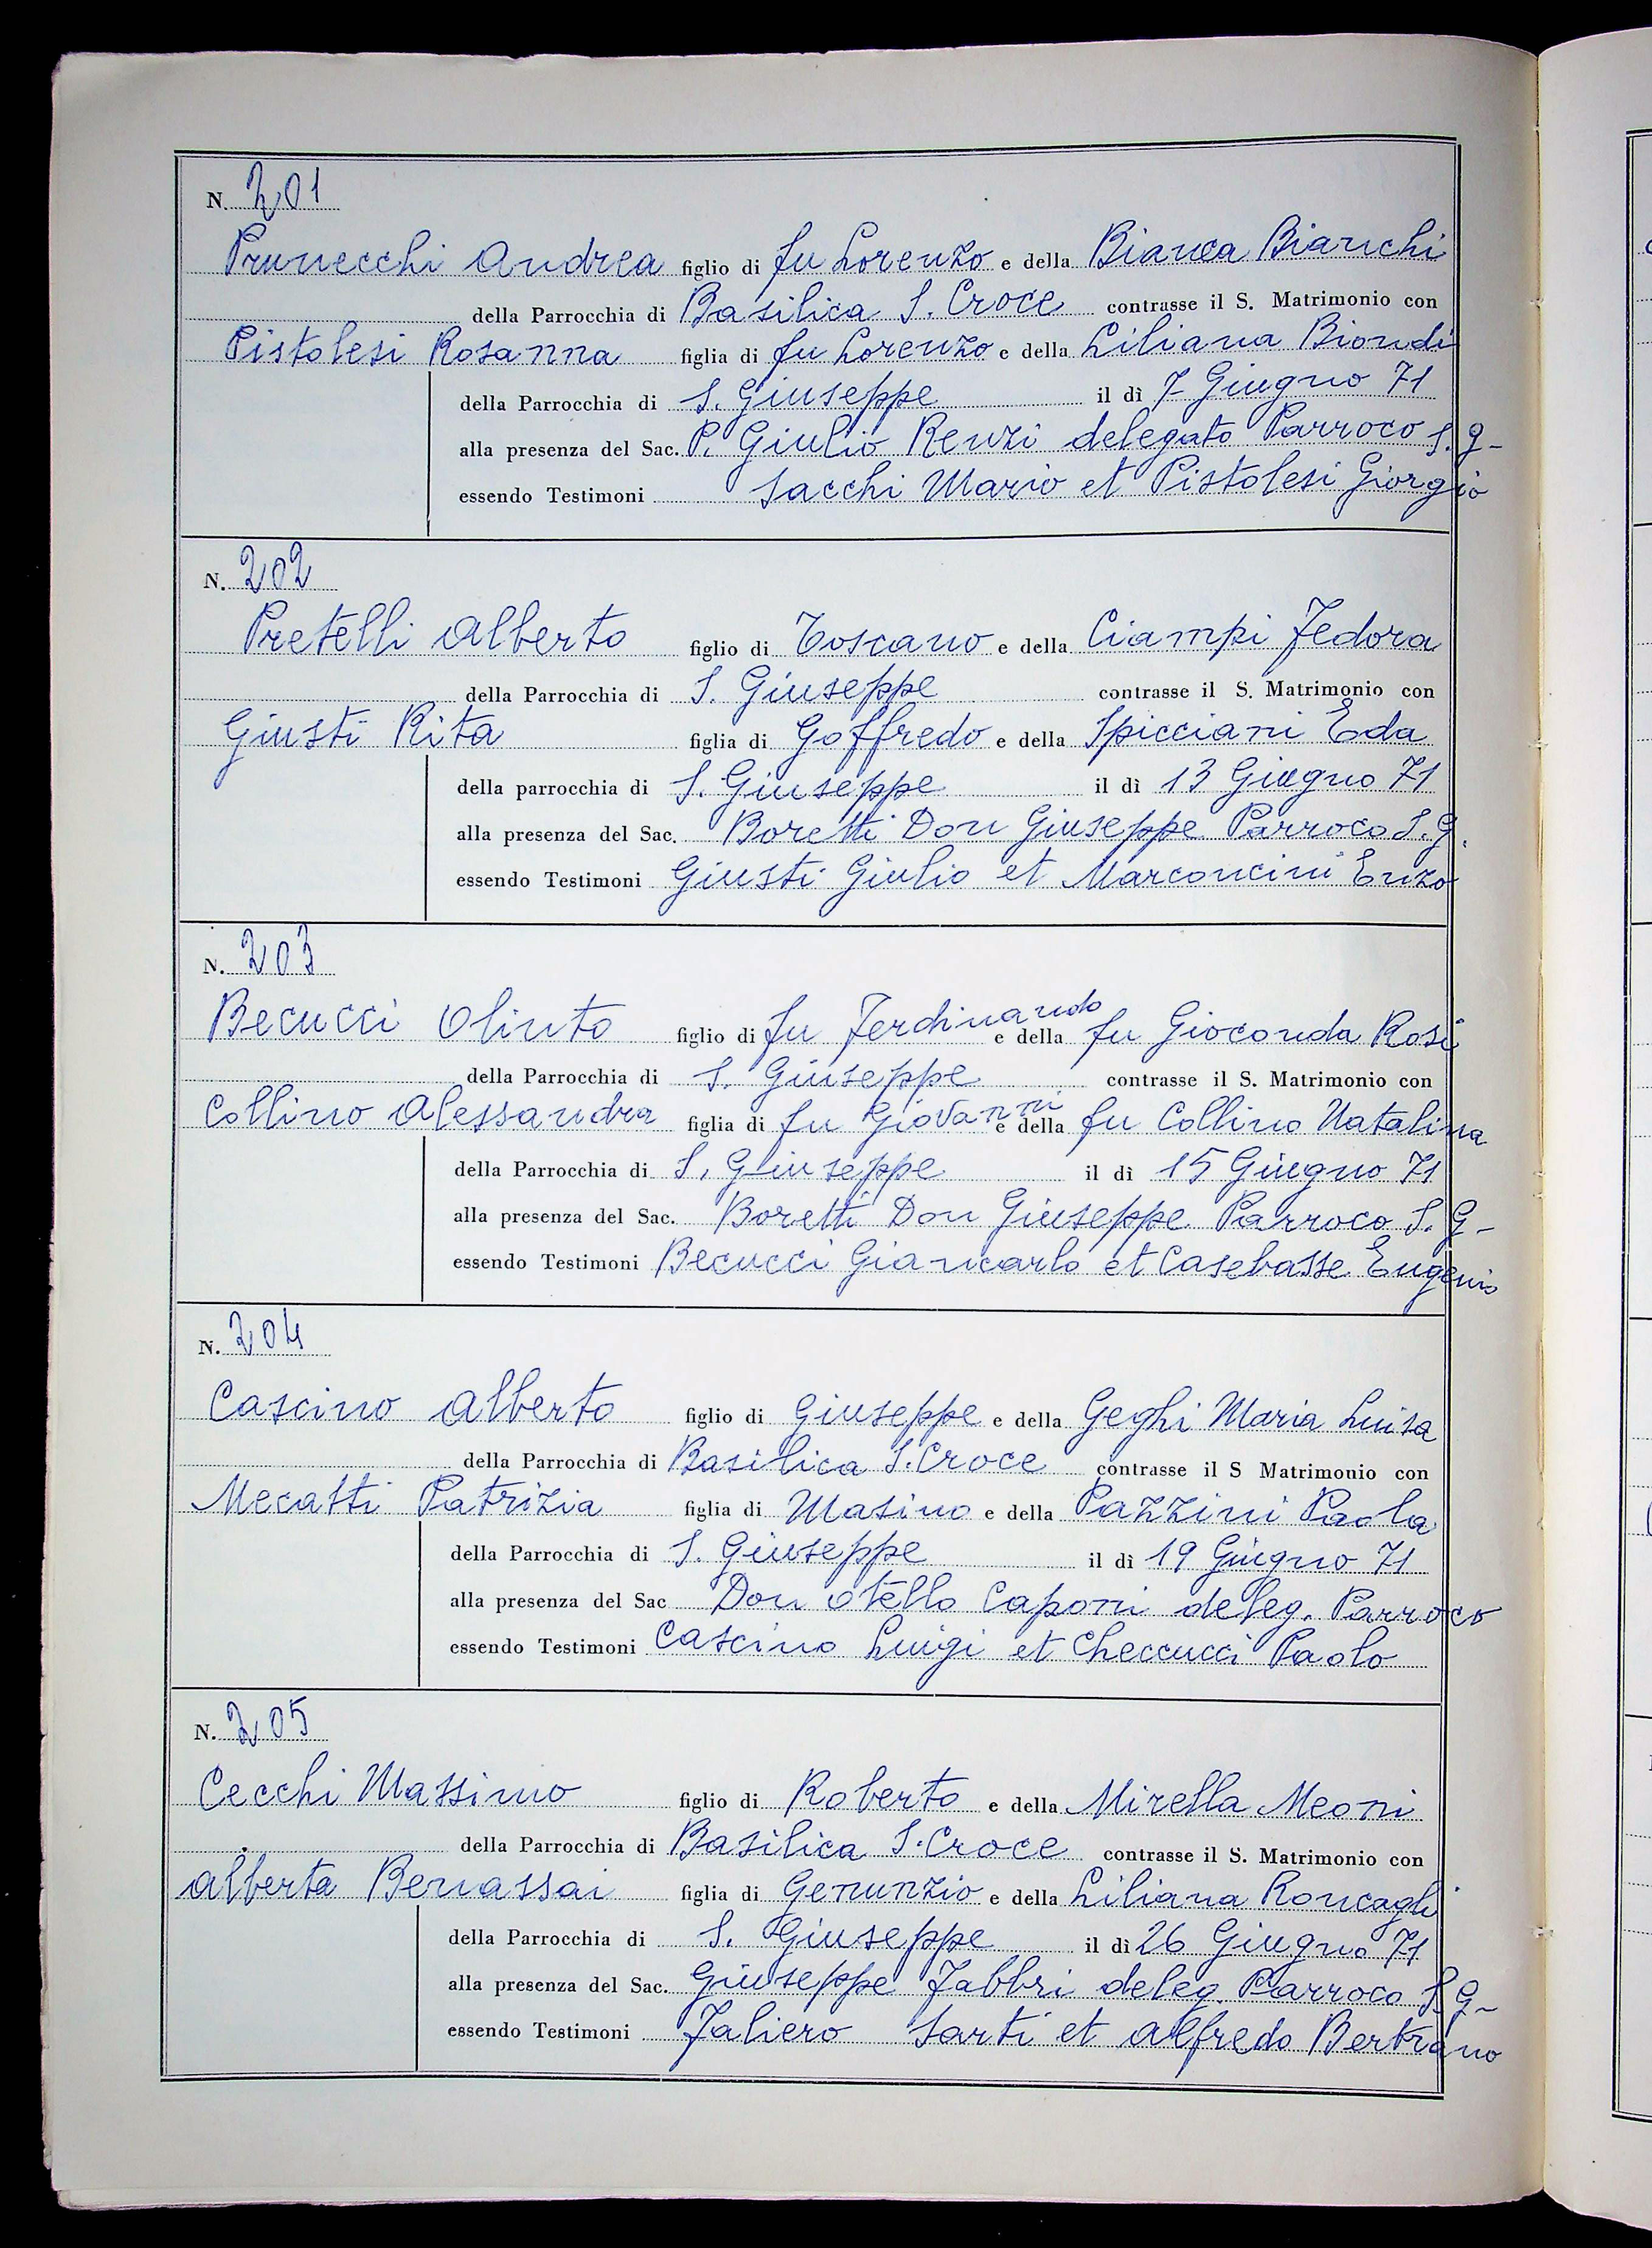 N. 201
Prunecchi Andrea figlio di fu Lorenzo e della Bianca Bianchi
della Parrocchia di Basilica S. Croce contrasse il S. Matrimonio con
Pistolesi Rosanna figlia di fu Lorenzo e della Liliana Biondi
della Parrocchia di S. Giuseppe il dì 7 Giugno 71
alla presenza del Sac. P. Giulio Renzi delegato Parroco S. G-
essendo Testimoni Sacchi Mario et Pistolesi Giorgio
N. 202
Pretelli Alberto figlio di Toscano e della Ciampi Fedora
della Parrocchia di S. Giuseppe contrasse il S. Matrimonio con
Giusti Rita figlia di Goffredo e della Spicciani Eda
della parrocchia di S. Giuseppe il dì 13 Giugno 71
alla presenza del Sac. Boretti Don Giuseppe Parroco S. G.
essendo Testimoni Giusti Giulio et Marconcini Enzo
N. 203
Becucci Olinto figlio di fu Ferdinando e della fu Gioconda Rosi
della Parrocchia di S. Giuseppe contrasse il S. Matrimonio con
Collino Alessandra figlia di fu Giovanni e della fu Collino Natalina
della Parrocchia di S. Giuseppe il dì 15 Giugno 71
alla presenza del Sac. Boretti Don Giuseppe Parroco S. G-
essendo Testimoni Becucci Giancarlo et Casebasse Eugenio
N. 204
Cascino Alberto figlio di Giuseppe e della Geghi Maria Luisa
della Parrocchia di Basilica S. Croce contrasse il S Matrimonio con
Mecatti Patrizia figlia di Masino e della Pazzini Paola
della Parrocchia di S. Giuseppe il dì 19 Giugno 71
alla presenza del Sac Don Otello Caponi deleg. Parroco
essendo Testimoni Cascino Luigi et Checcucci Paolo
N. 205
Cecchi Massimo figlio di Roberto e della Mirella Meoni
della Parrocchia di Basilica S. Croce contrasse il S. Matrimonio con
Alberta Benassai figlia di Genunzio e della Liliana Roncagli
della Parrocchia di S. Giuseppe il dì 26 Giugno 71
alla presenza del Sac. Giuseppe Fabbri deleg. Parroco S G-
essendo Testimoni Faliero Sarti et Alfredo Bertrano